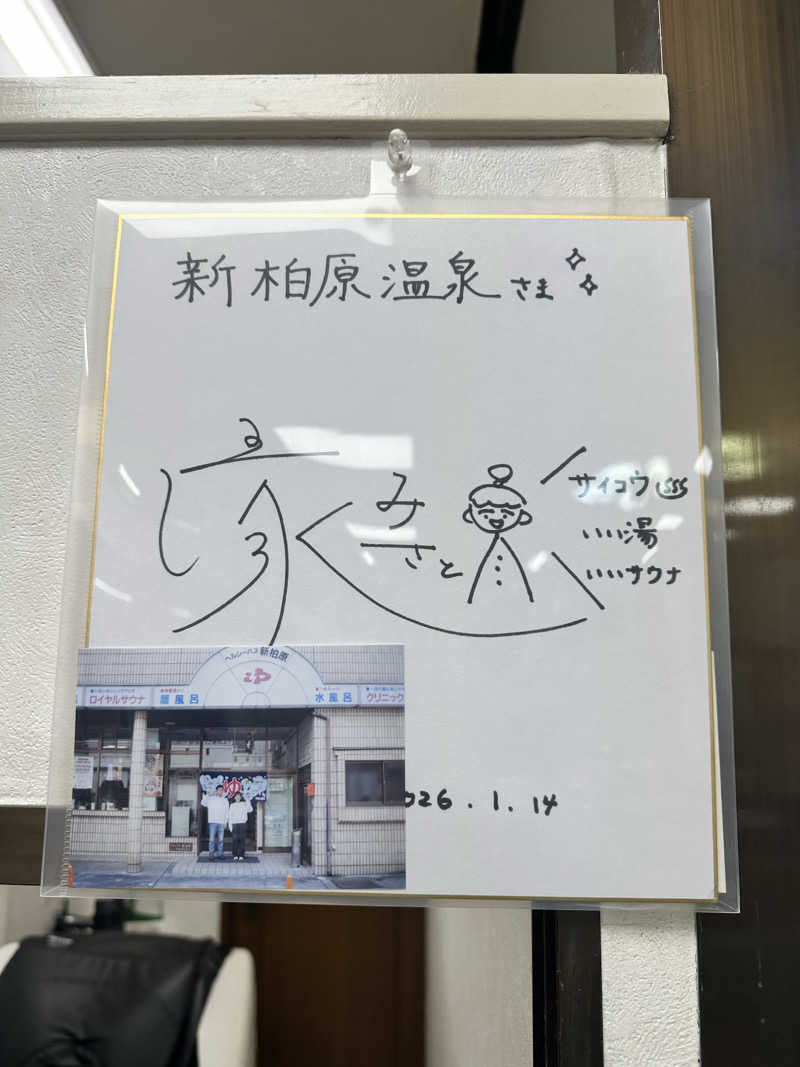 新柏原温泉さま
みさと
サイコウ
いい湯
いいサウナ
ヘルシーバス新柏原
ゆ
ロイヤルサウナ
水風呂
クリニック
ゆ
026.1.14